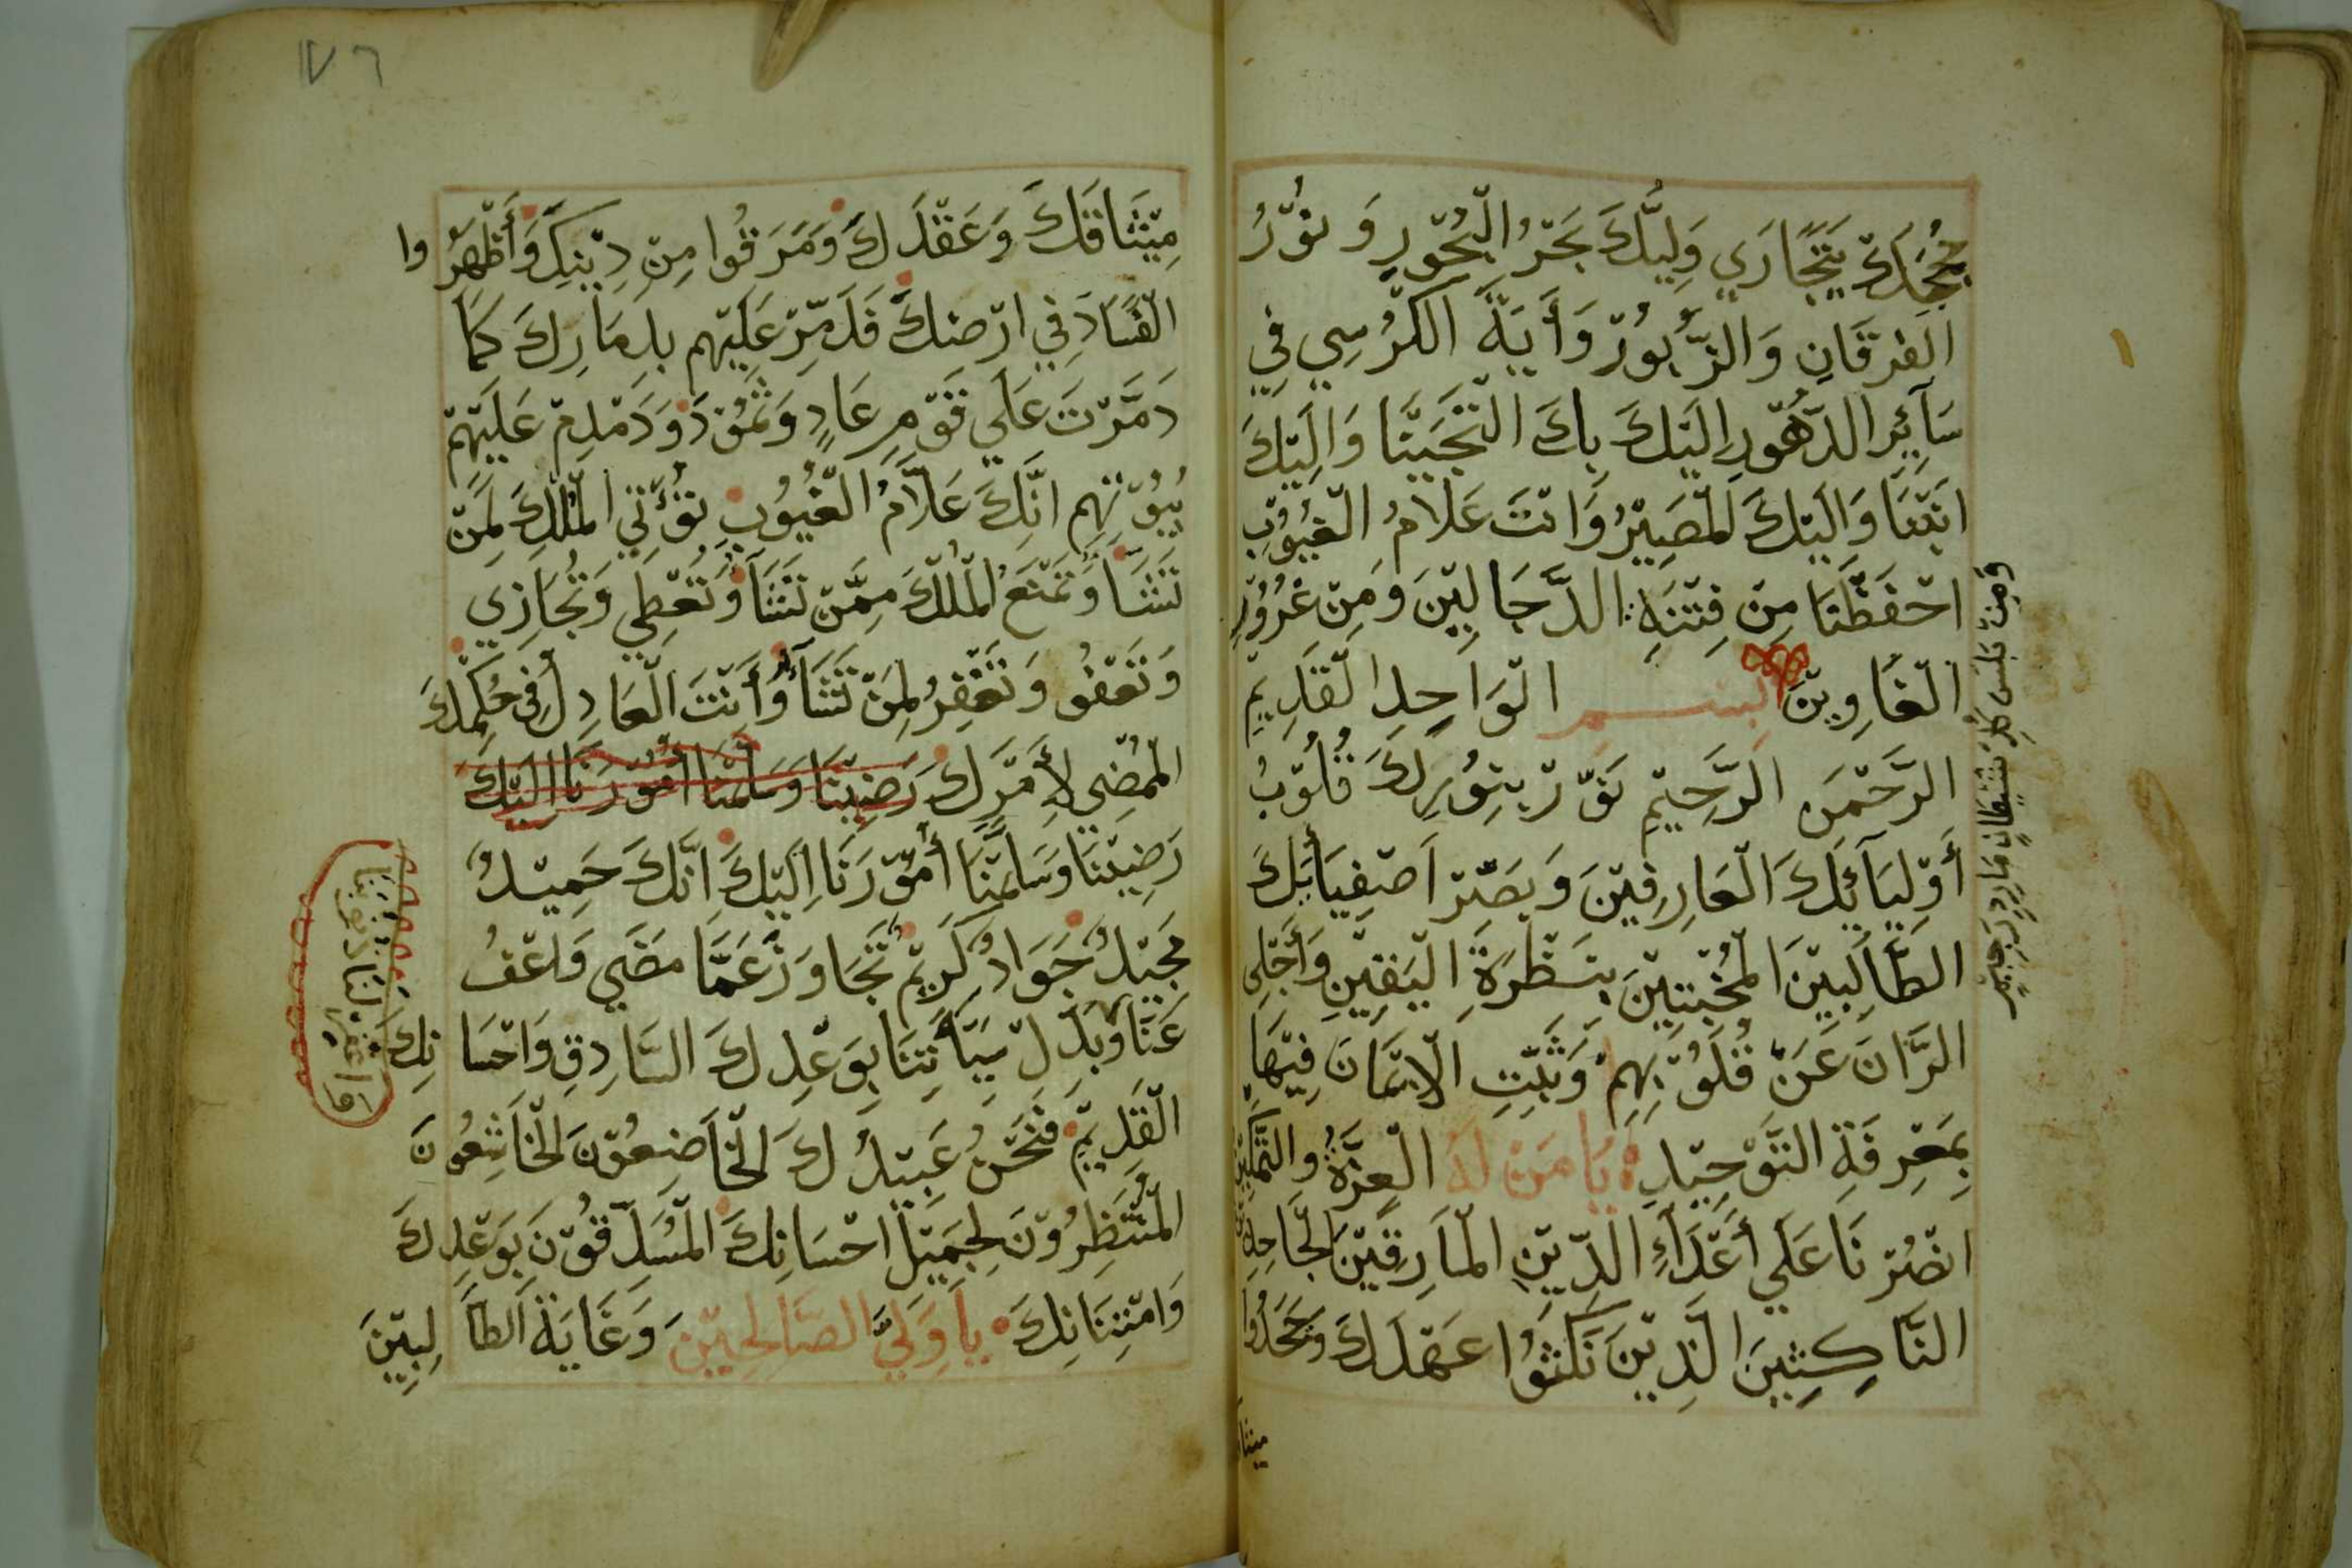 يَتَجَارَي وَلِيُّكَ بَحْرُ الْبُحُوْرِ وَنُوْرُ
الْفُرْقَانِ وَالزَّبُوْرْ وَأَيَةَ الْكُرْسِي فِي
سَآئِرِ الدُّهُوْرِ اِلَيْكَ بِكَ الْتَجَيْنَا وَاِلَيْكَ
اَنَبْنَا وَاِلَيْكَ لْمَصِيْرُ وَانْتَ عَلَامُ الْغُيُوْبِ
احْفَظْنَا مِنْ فِتْنَةِ الدَّجَالِيْنَ وَمِنْ غُرُوْرِ
الْغَاوِيْنَ بسم الْوَاحِدِ الْقَدِيْمِ
الرَّحْمَنِ الرَّحِيْمِ نَوِّرْ بِنُوْرِكَ قُلُوْبُ
أَوْلِيَآئِكَ الْعَارِفِيْنَ وَبَصِّرْ اَصْفِيَائِكَ
الطَّالِبِيْنَ الْمُخْبِتِيْنَ بِنَظْرَةِ الْيَقِيْنِ وَأَجْلِي
الرَّانَ عَنْ قُلُوْبِهِمْ وَثَبِّتِ الْاِيْمَانَ فِيْهَا
بِمَعْرِفَةِ التَّوْحِيْدِ يَا مَنْ لَهُ الْعِزَّةُ وَالتَّمْكِيْنِ
انْصُرْنَا عَلَي أَعْدَآءِ الدِّيْنِ الْمَارِقِيْنَ
النَّاكِثِيْنَ الَّذِيْنَ نَكَثُوْا عَهْدَكَ وَجَحَدُوْا
وَمِنْ كُلِّ شَيْطَانٍ مَارِدٍ رَجِيْمٍ
١٧٦
مِيْثَاقَكَ وَعَقْدَكَ وَمَرَقُوا مِنْ دِيْنِكَ وَأَظْهَرُوا
الْفَسَادَ فِي ارْضِكَ فَدَمِّرْ عَلَيْهِم بِدِمَارِكَ كَمَا
دَمَّرْتَ عَلَي قَوْمِ عَادٍ وَثَمُوْدَ وَدَمْدِمْ عَلَيْهِمْ
بُيُوْتَهِم اِنَّكَ عَلَّامُ الْغُيُوْبِ تُؤْتِي الْمُلْكَ لِمَنْ
تَشَا وَتَمْنَعُ الْمُلْكَ مِمَّنْ تَشَآ وَتُعْطِي وَتُجَازِي
وَتَعْفُو وَتَغْفِرُ لِمَنْ تَشَآءُ وَأَنْتَ الْعَادِلُ فِى حُكْمِكَ
الْمُمْضِي لِأَمْرِكَ رَضِيْنَا وَسَلَمْنَا أُمُوْرَنَا اِلَيْكَ
رَضِيْنَا وَسَلَمْنَا أُمُوْرَنَا اِلَيْكَ اِنَّكَ حَمِيْدٌ
مَجِيْدٌ جَوَادٌ كَرِيْمٌ تَجَاوَزْ عَمَّا مَضَي وَاعْفُ
عَنَّا وَبَدِّلْ سَيِّآتِنَا بِوَعْدِكَ السَّادِقِ وَاحْسَانِكَ
الْقَدِيْمِ فَنَحْنُ عَبِيْدُكَ الْخَاضِعُوْنَ الْخَاشِعُوْنَ
الْمُنْتَظِرُوْنَ لِجَمِيْلِ احْسَانِكَ الْمُسَدِّقُوْنَ بِوَعْدِكَ
وَامْتِنَانِكَ يَا وَلِيَّ الصَّالِحِيْنَ وَغَايَةَ الطَّالِبِيْنَ
واغفر لنا ذنوبنا